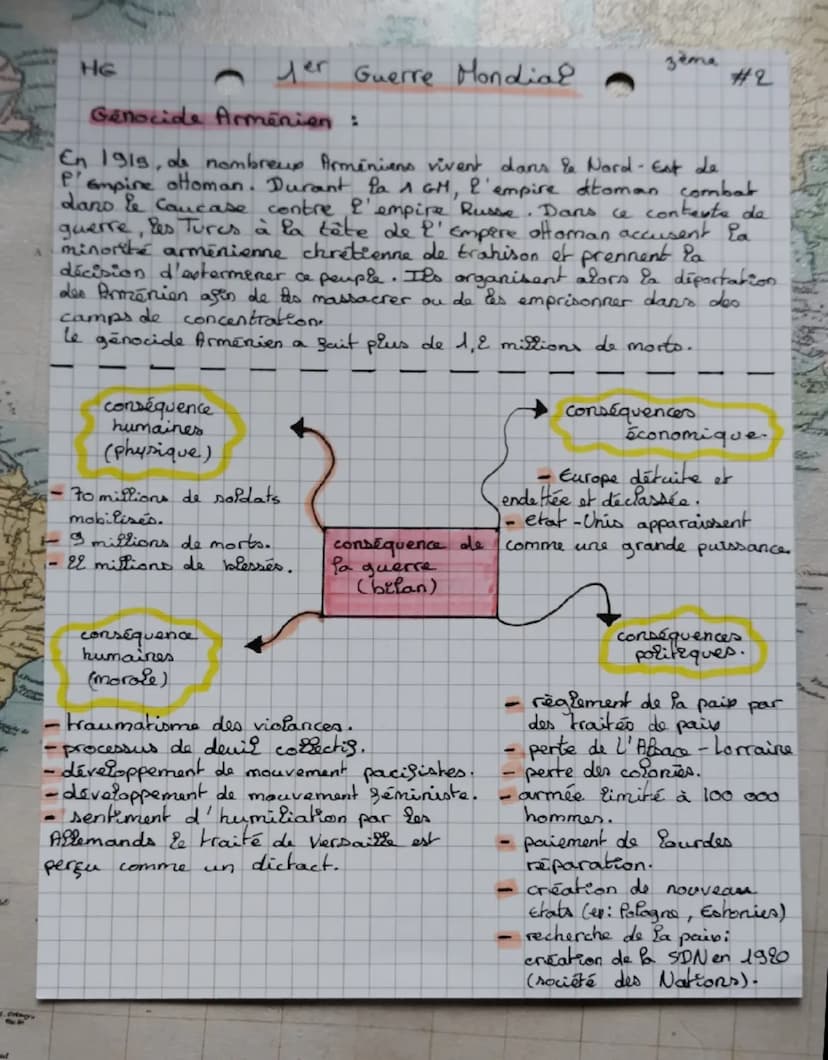 HG
1er Guerre Mondial
3ème
#2
Génocide Arménien :
En 1919, de nombreux Arméniens vivent dans le Nord-Est de
l'empire ottoman. Durant la 1 GM, l'empire ottoman combat
dans le Caucase contre l'empire Russe. Dans ce contexte de
guerre, les Turcs à la tête de l'Empere ottoman accusent la
minorité arménienne chrétienne de trahison et prennent la
décision d'extermener ce peuple. Ils organisent alors la déportation
des Arménien afin de les massacrer ou de les emprisonner dans des
camps de concentration.
Le génocide Arménien a fait plus de 1,2 millions de morts.
conséquence
humaines
(physique)
- 70 millions de soldats
mobilisés.
- 9 millions de morts.
- 22 millions de blessés.
conséquences
économique.
- Europe détruite et
endettée et déclassée.
- etat-Unis apparaissent
comme une grande puissance.
conséquence de
la guerre
(bilan)
conséquence
humaines
(morale)
- traumatisme des violances.
- processus de deuil collectif.
- développement de mouvement pacifistes.
- développement de mouvement féministe.
- sentiment d'humiliation par les
Allemands le traité de Versaille est
perçu comme un dictact.
conséquences
politiques.
- règlement de la paix par
des traités de paix
- perte de l'Alsace-Lorraine
- perte des colonies.
- armée limité à 100 000
hommes.
- paiement de lourdes
réparation.
- création de nouveau
Etats (ex: Pologne, Estonies)
- recherche de la paix:
création de la SDN en 1920
(société des Nations).